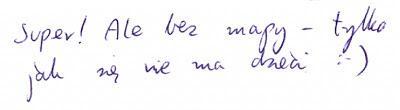 Super! Ale bez mapy - tylko
jak się nie ma dzieci :-)